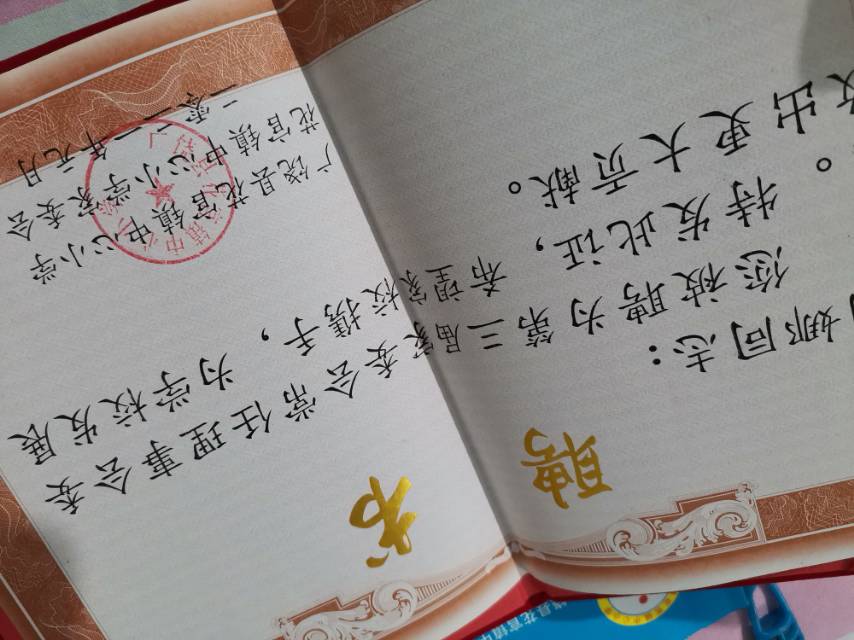 聘书
娜同志：
您被聘为第三届家委会常任理事会委
。特发此证，希望家校携手，为学校发展
出更大贡献。
广饶县花官镇中心小学
花官镇中心小学家委会
二零二二年元月